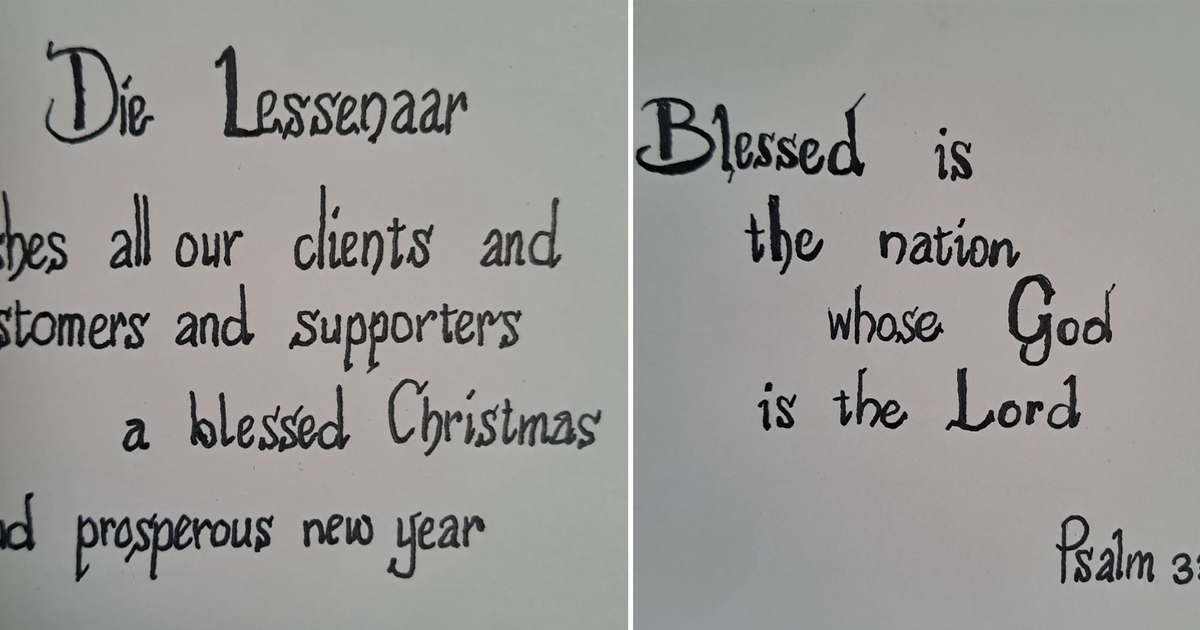 Die Lessenaar
hes all our clients and
stomers and supporters
a blessed Christmas
d prosperous new year
Blessed is
the nation
whose God
is the Lord
Psalm 3